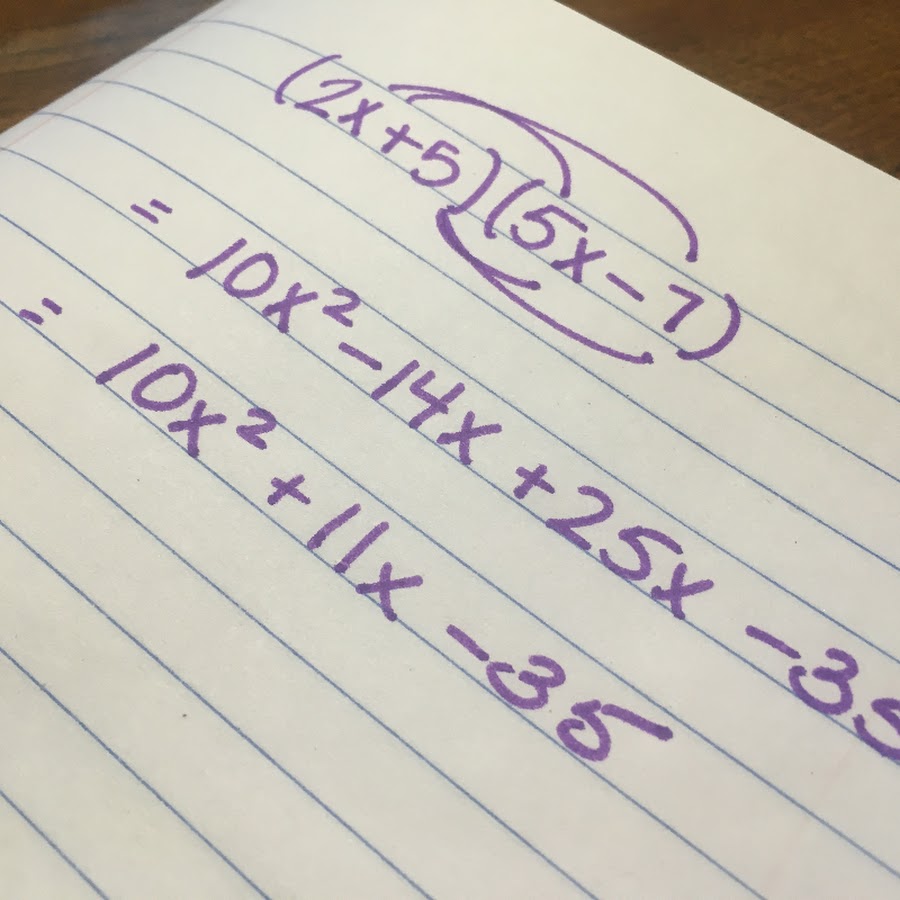 (2x+5)(5x-7)
= 10x² -14x +25x -35
= 10x² +11x -35